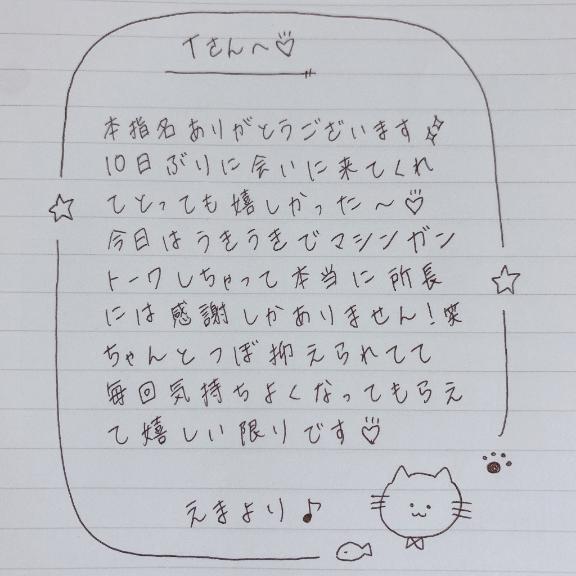 Tさん〜♡
本指名ありがとうございます
10日ぶりに会いに来てくれ
てとっても嬉しかった〜♡
今日はうきうきでマシンガン
トークしちゃって本当に所長
には感謝しかありません!笑
ちゃんとつぼ抑えられてて
毎回気持ちよくなってもらえ
て嬉しい限りです♡
えまより♪